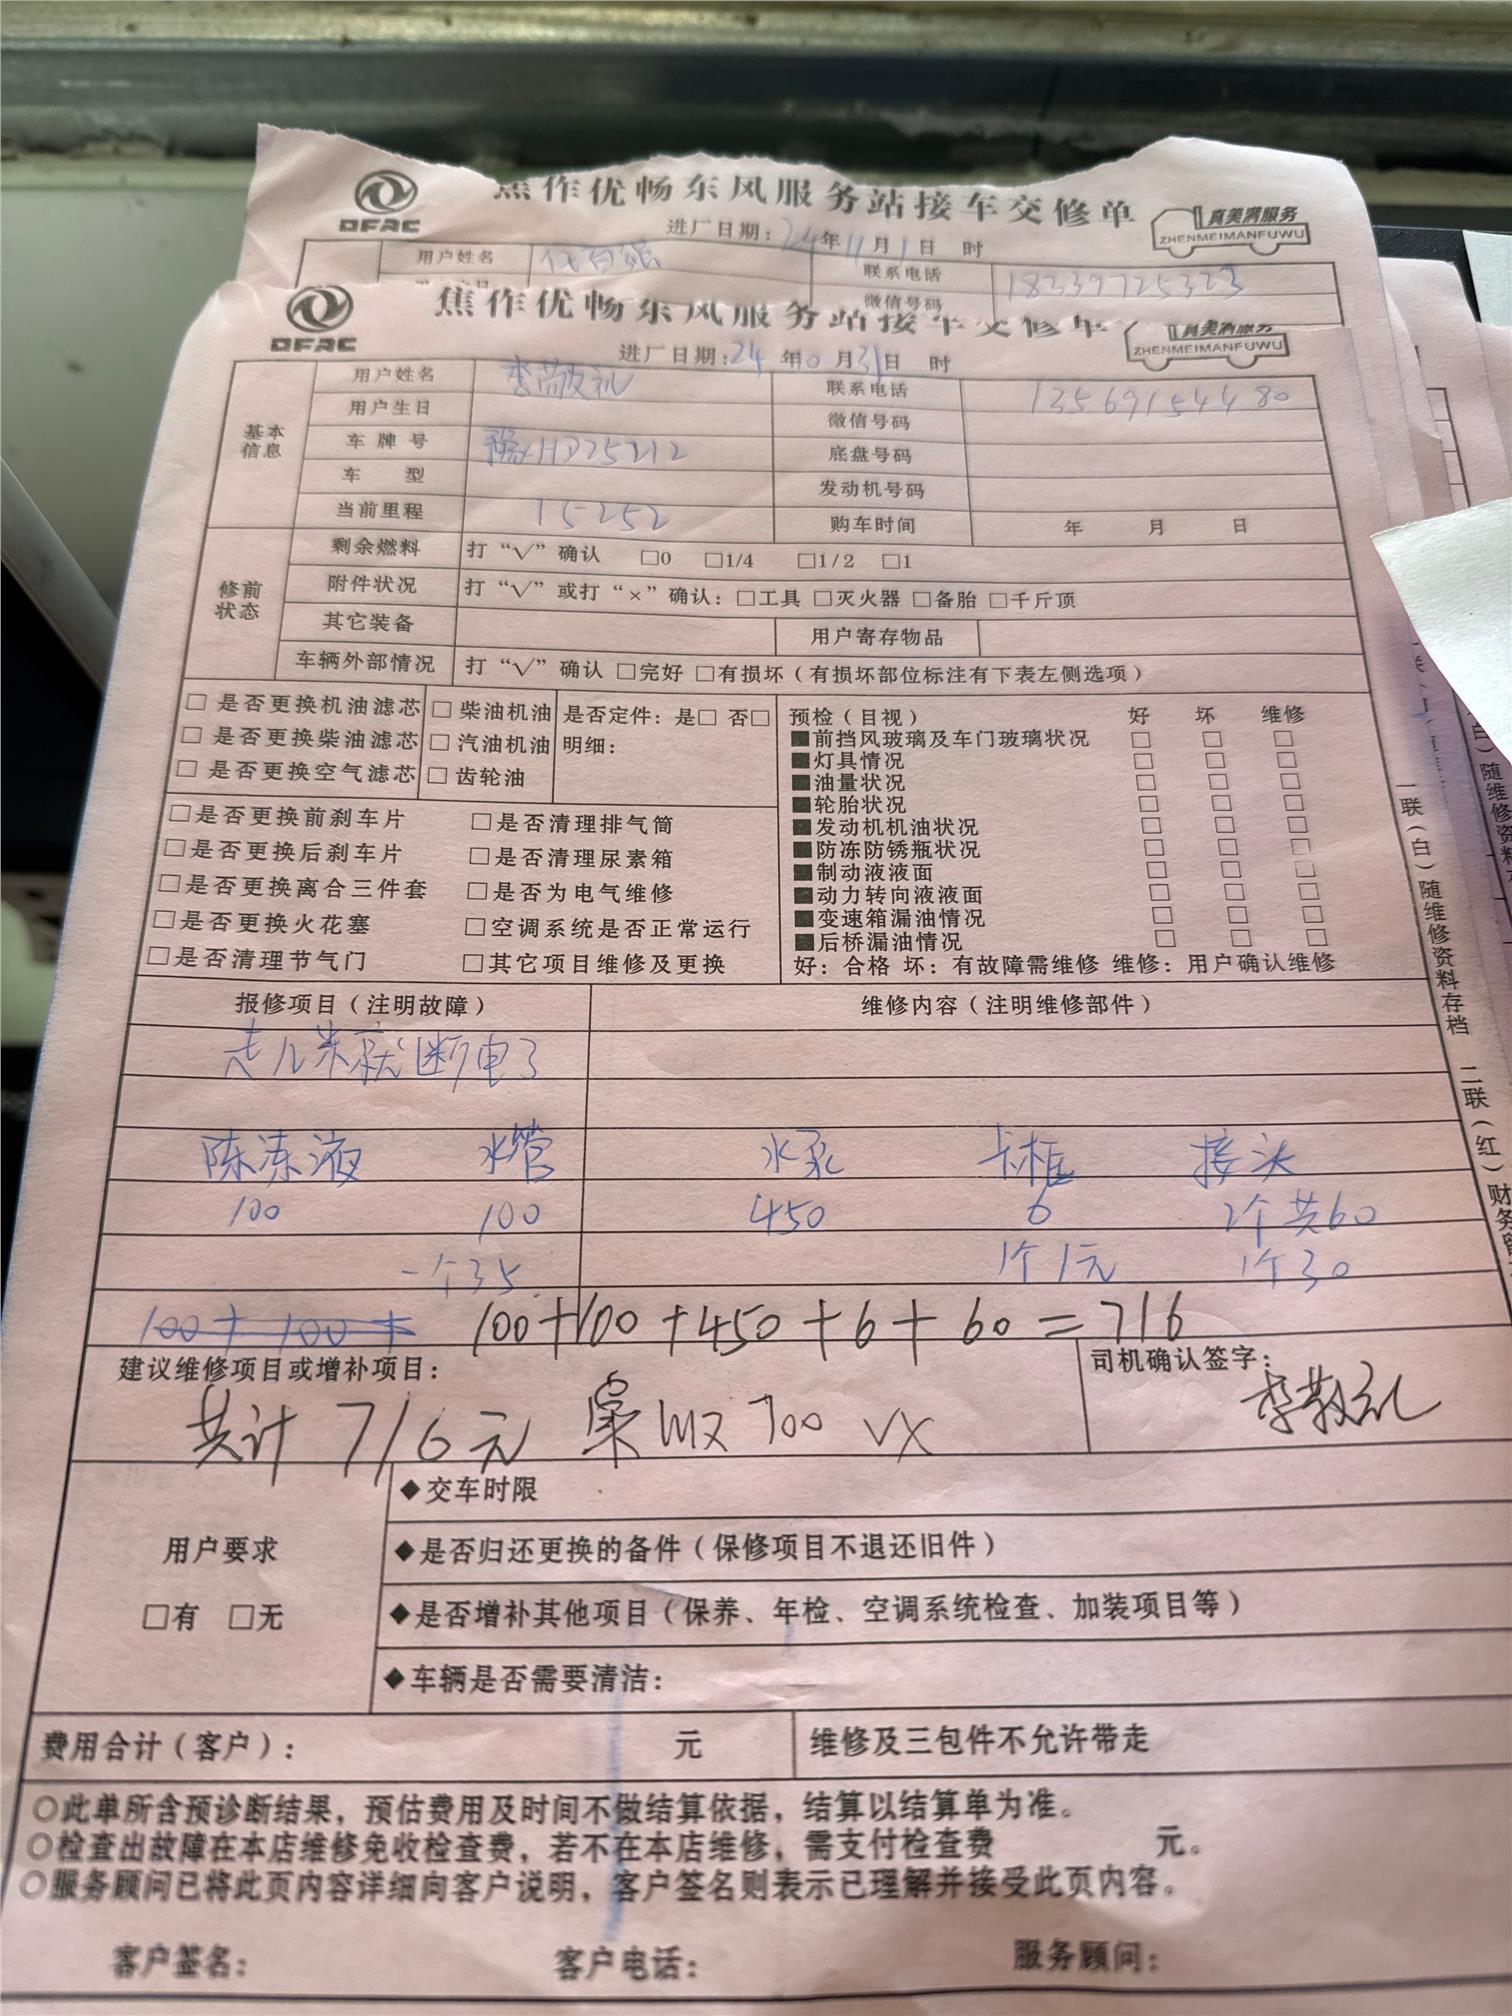 焦作优畅东风服务站接车交修单
DFAC
真美满服务
ZHENMEIMANFUWU
进厂日期：24年11月1日 时
用户姓名
联系电话 18239725323
微信号码
焦作优畅东风服务站接车交修单
DFAC
真美满服务
ZHENMEIMANFUWU
进厂日期：24年10月31日 时
基本信息
用户姓名 李敬礼 联系电话 13569154480
用户生日 微信号码
车牌号 豫HD25212 底盘号码
车型 发动机号码
当前里程 15252 购车时间 年 月 日
修前状态
剩余燃料 打“√”确认 □0 □1/4 □1/2 □1
附件状况 打“√”或打“×”确认：□工具 □灭火器 □备胎 □千斤顶
其它装备 用户寄存物品
车辆外部情况 打“√”确认 □完好 □有损坏（有损坏部位标注有下表左侧选项）
□是否更换机油滤芯 □柴油机油 是否定件：是□ 否□
□是否更换柴油滤芯 □汽油机油 明细：
□是否更换空气滤芯 □齿轮油
预检（目视） 好 坏 维修
■前挡风玻璃及车门玻璃状况 □ □ □
■灯具情况 □ □ □
■油量状况 □ □ □
■轮胎状况 □ □ □
■发动机机油状况 □ □ □
■防冻防锈瓶状况 □ □ □
■制动液液面 □ □ □
■动力转向液液面 □ □ □
■变速箱漏油情况 □ □ □
■后桥漏油情况 □ □ □
好：合格 坏：有故障需维修 维修：用户确认维修
□是否更换前刹车片 □是否清理排气筒
□是否更换后刹车片 □是否清理尿素箱
□是否更换离合三件套 □是否为电气维修
□是否更换火花塞 □空调系统是否正常运行
□是否清理节气门 □其它项目维修及更换
报修项目（注明故障） 维修内容（注明维修部件）
走几米就断电了
陈冻液 水管 水泵 卡框 接头
100 100 450 6 2个共60
一个35 1个1元 1个30
100+100+ 100+100+450+6+60=716
建议维修项目或增补项目： 司机确认签字：
共计716元 700 VX 李敬礼
用户要求
□有 □无
◆交车时限
◆是否归还更换的备件（保修项目不退还旧件）
◆是否增补其他项目（保养、年检、空调系统检查、加装项目等）
◆车辆是否需要清洁：
费用合计（客户）： 元 维修及三包件不允许带走
○此单所含预诊断结果，预估费用及时间不做结算依据，结算以结算单为准。
○检查出故障在本店维修免收检查费，若不在本店维修，需支付检查费 元。
○服务顾问已将此页内容详细向客户说明，客户签名则表示已理解并接受此页内容。
客户签名： 客户电话： 服务顾问：
一联（白）随维修资料存档 二联（红）财务